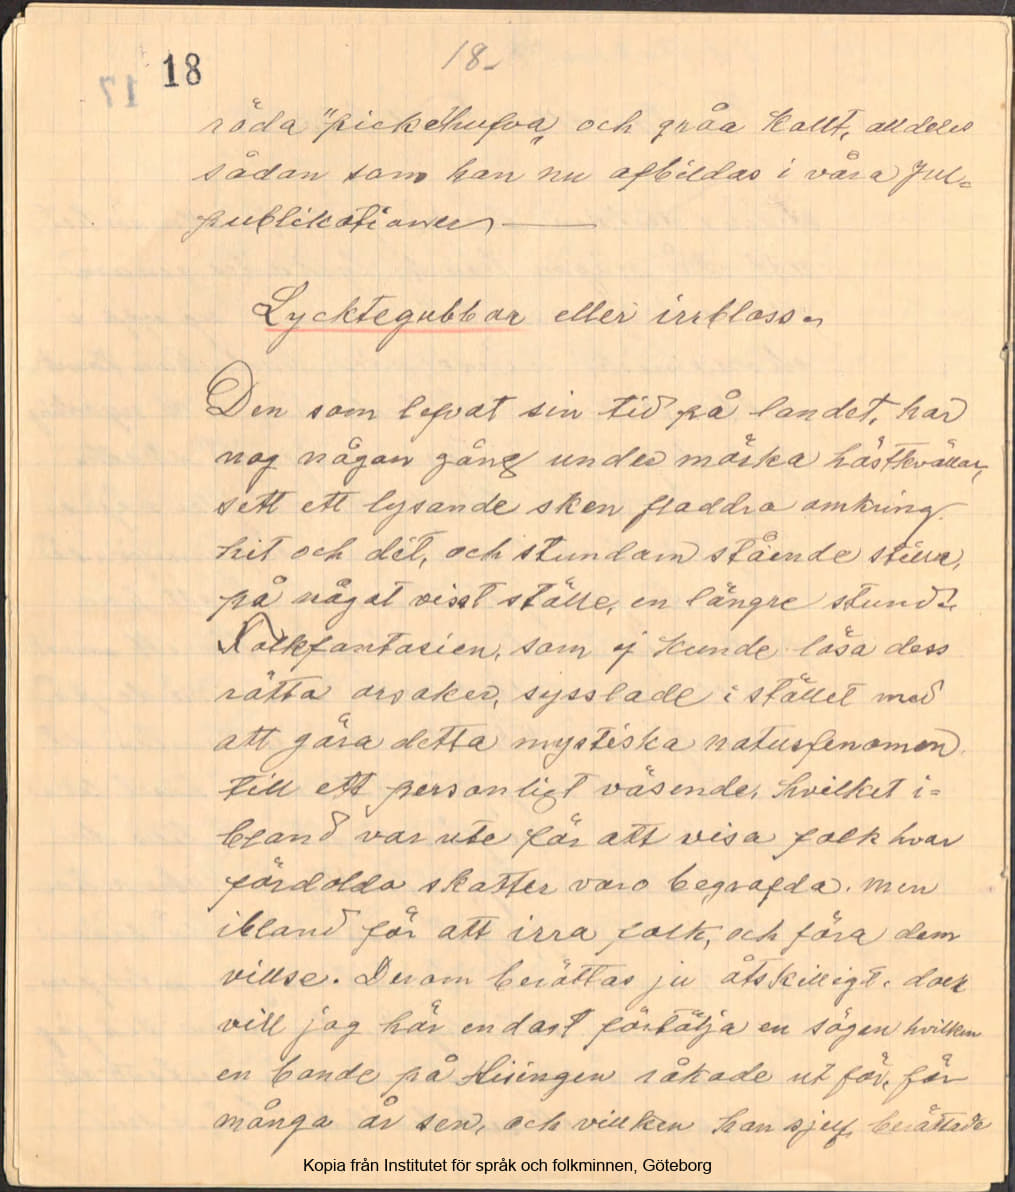 18
18.
17
röda "pickelhufva" och gråa kollt, alldeles
sådan som han nu afbildas i våra Jul-
publikationer, —
Lycktegubbar eller irrbloss.
Den som lefvat sin tid på landet, har
nog någon gång under mörka höstkvällar,
sett ett lysande sken fladdra omkring
hit och dit, och stundom stående stilla,
på något visst ställe, en längre stund.
Folkfantasien, som ej kunde lösa dess
rätta orsaker, sysslade i stället med
att göra detta mystiska natursfenomen
till ett personligt väsende, hvilket i-
bland var ute för att visa folk hvar
fördolda skatter voro begrafda. men
ibland för att irra folk, och föra dem
villse. Derom berättas ju åtskilligt. dock
vill jag här endast förtälja en sägen hvilken
en bonde på Hisingen råkade ut för, för
många år sen, och villken han sjelf berättade
Kopia från Institutet för språk och folkminnen, Göteborg